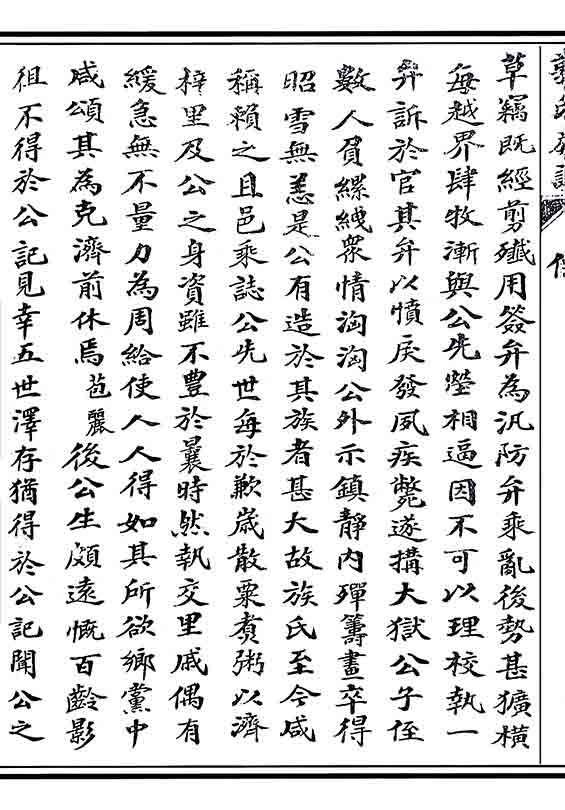 草竊既經剪殲用簽弁為汛防弁乘亂後勢甚獷橫
每越界肆牧漸與公先塋相逼因不可以理校執一
弁訴於官其弁以憤戾發夙疾斃遂搆大獄公子侄
數人貧縲絏眾情洶洶公外示鎮靜內殫籌畫卒得
昭雪無恙是公有造於其族者甚大故族氏至今咸
稱賴之且邑乘誌公先世每於歉歲散粟煑粥以濟
梓里及公之身資雖不豐於曩時然執交里戚偶有
緩急無不量力為周給使人人得如其所欲鄉黨中
咸頌其為克濟前休焉苞麗後公生頗遠慨百齡影
徂不得於公記見幸五世澤存猶得於公記聞公之